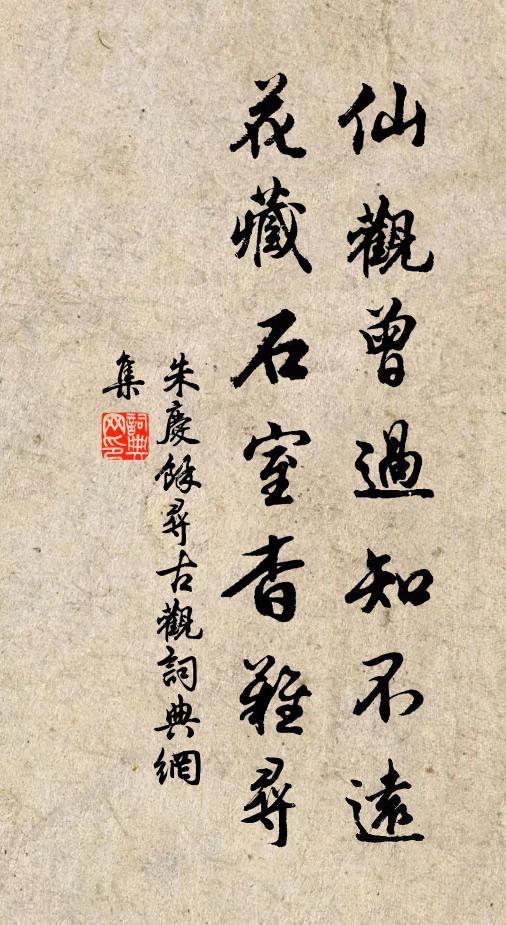 仙觀曾過知不遠
花藏石室杳難尋
朱慶餘尋古觀詞典網
集
詞典
网印